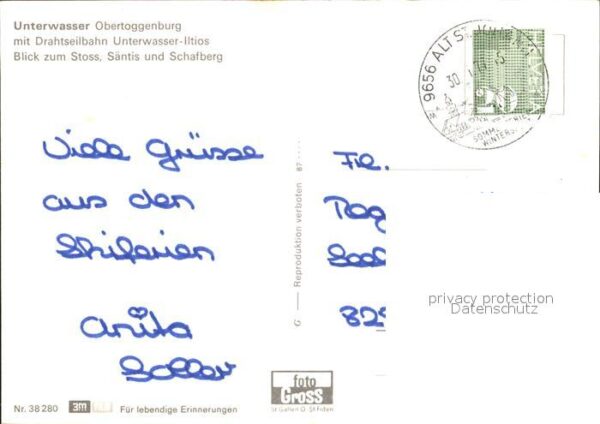 Unterwasser Obertoggenburg
mit Drahtseilbahn Unterwasser-Iltios
Blick zum Stoss, Säntis und Schafberg
9656 ALT ST.
30.
HELVETIA
SOMME
WINTERS
Viele Grüsse
aus den
Skiferien
Anita
Soller
G — Reproduktion verboten 87
Frl.
825
privacy protection
Datenschutz
foto
Gross
St Gallen O. St Fiden
Nr. 38 280 3M Für lebendige Erinnerungen